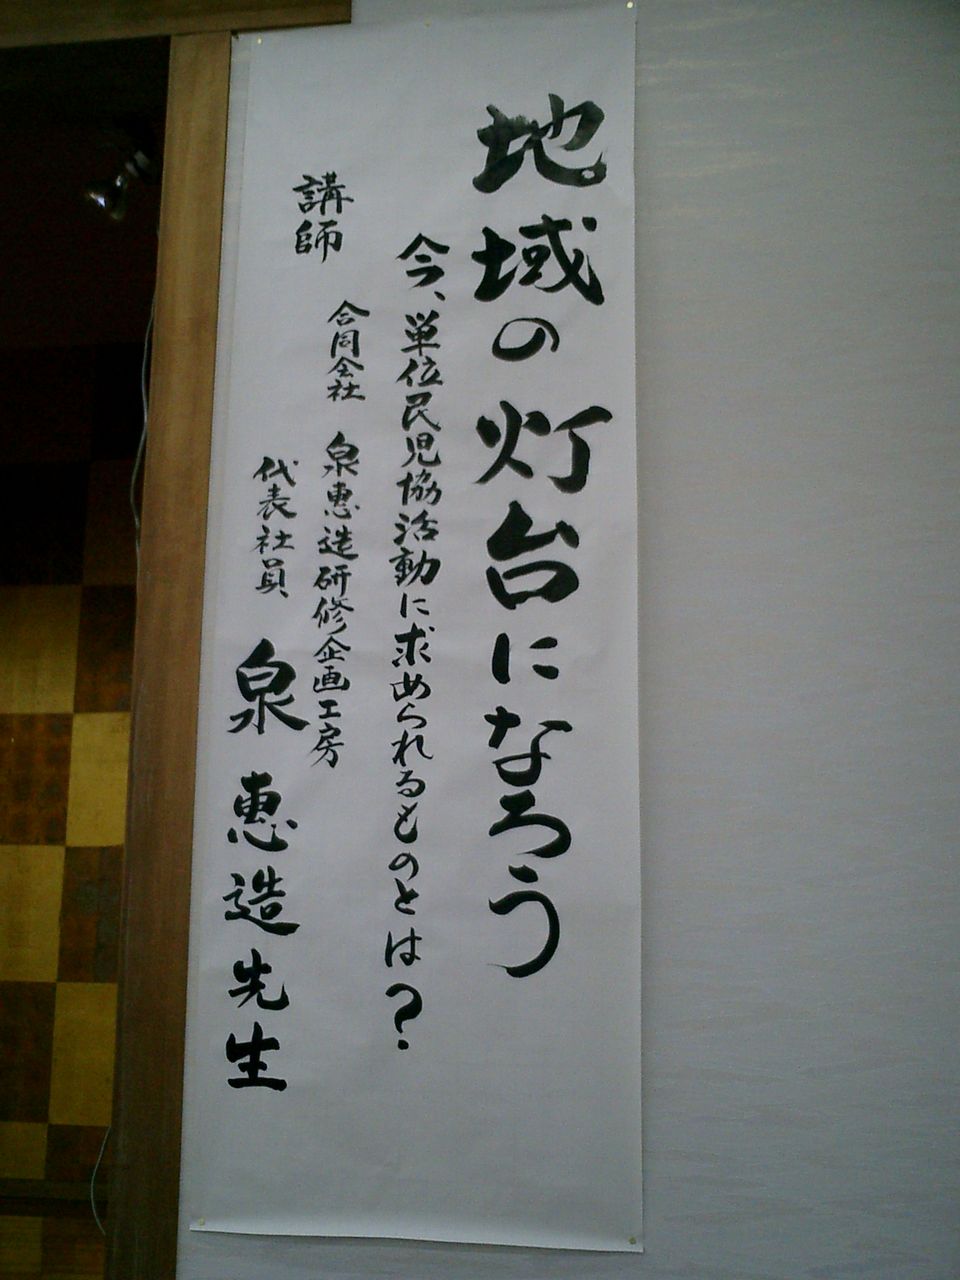 地域の灯台になろう
今、単位民児協活動に求められるものとは?
講師
合同会社 泉惠造研修企画工房
代表社員 泉惠造先生